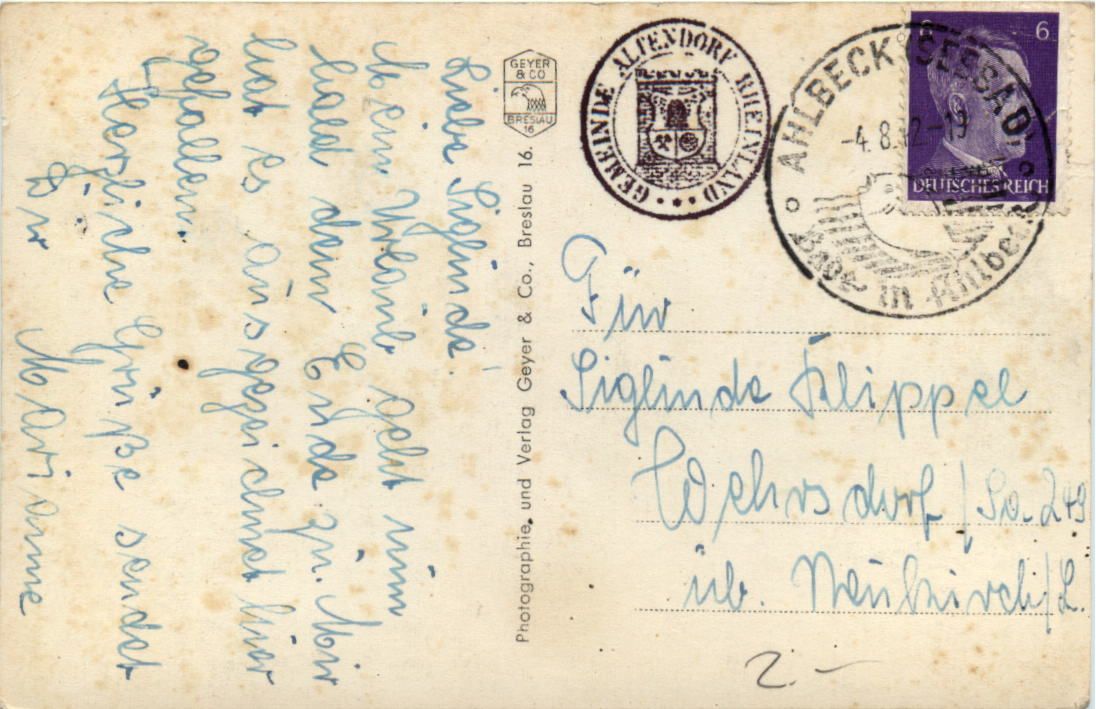 Liebe Siglinde!
Mein Urlaub geht nun
bald dem Ende zu. Mir
hat es ausgezeichnet hier
gefallen.
Herzliche Grüße sendet
Dir Marianne
GEYER
& CO
BRESLAU
16
Photographie und Verlag Geyer & Co., Breslau 16.
GEMEINDE ALTENDORF RHEINLAND
AHLBECK (SEEBAD)
-4.8.42-19
Bade in Ahlbeck
6
DEUTSCHES REICH
Für
Siglinde Klippel
Wehrsdorf / Sa. 249
üb. Neukirch/L.
2.-